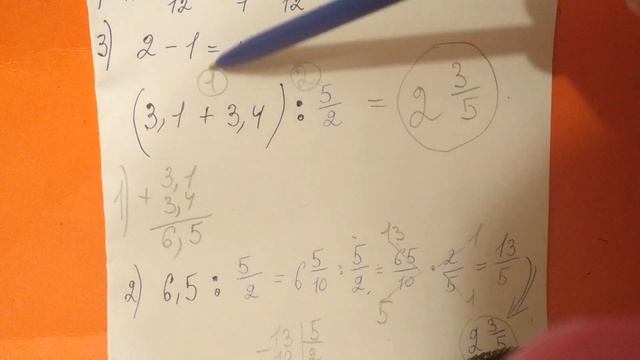 12 1 12
3) 2 - 1 =
1 2
(3,1 + 3,4) : 5/2 = 2 3/5
1) + 3,1
3,4
6,5
2) 6,5 : 5/2 = 6 5/10 : 5/2 = 65/10 · 2/5 = 13/5
13 1
5 1
2 3/5
- 13 | 5
10 | 2